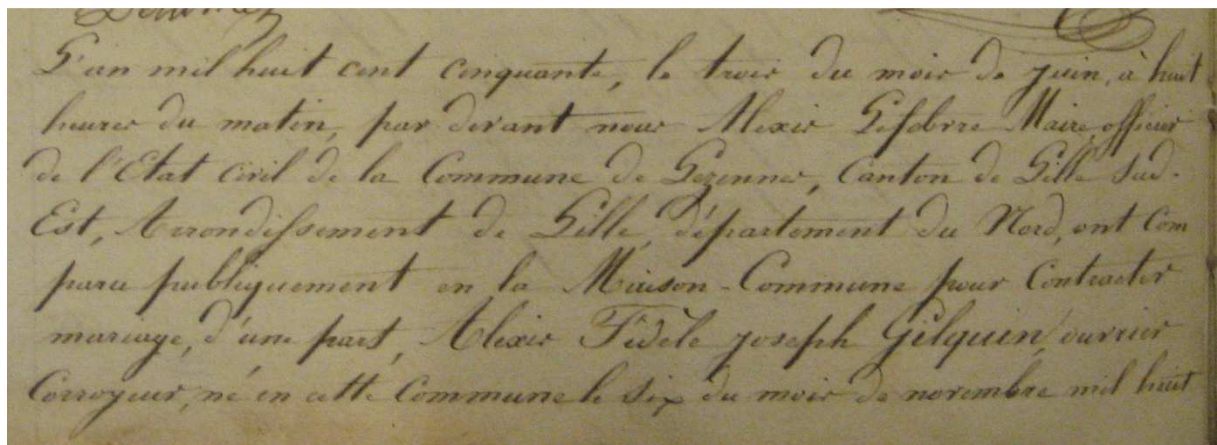 L'an mil huit cent cinquante, le trois du mois de juin, à huit
heures du matin, par devant nous Alexis Lefebvre Maire, officier
de l'Etat civil de la Commune de Lezennes, Canton de Lille Sud-
Est, Arrondissement de Lille, département du Nord, ont com
paru publiquement en la Maison-Commune pour Contracter
mariage, d'une part, Alexis Fidèle Joseph Gilquin, ouvrier
Corroyeur, né en cette Commune le six du mois de novembre mil huit